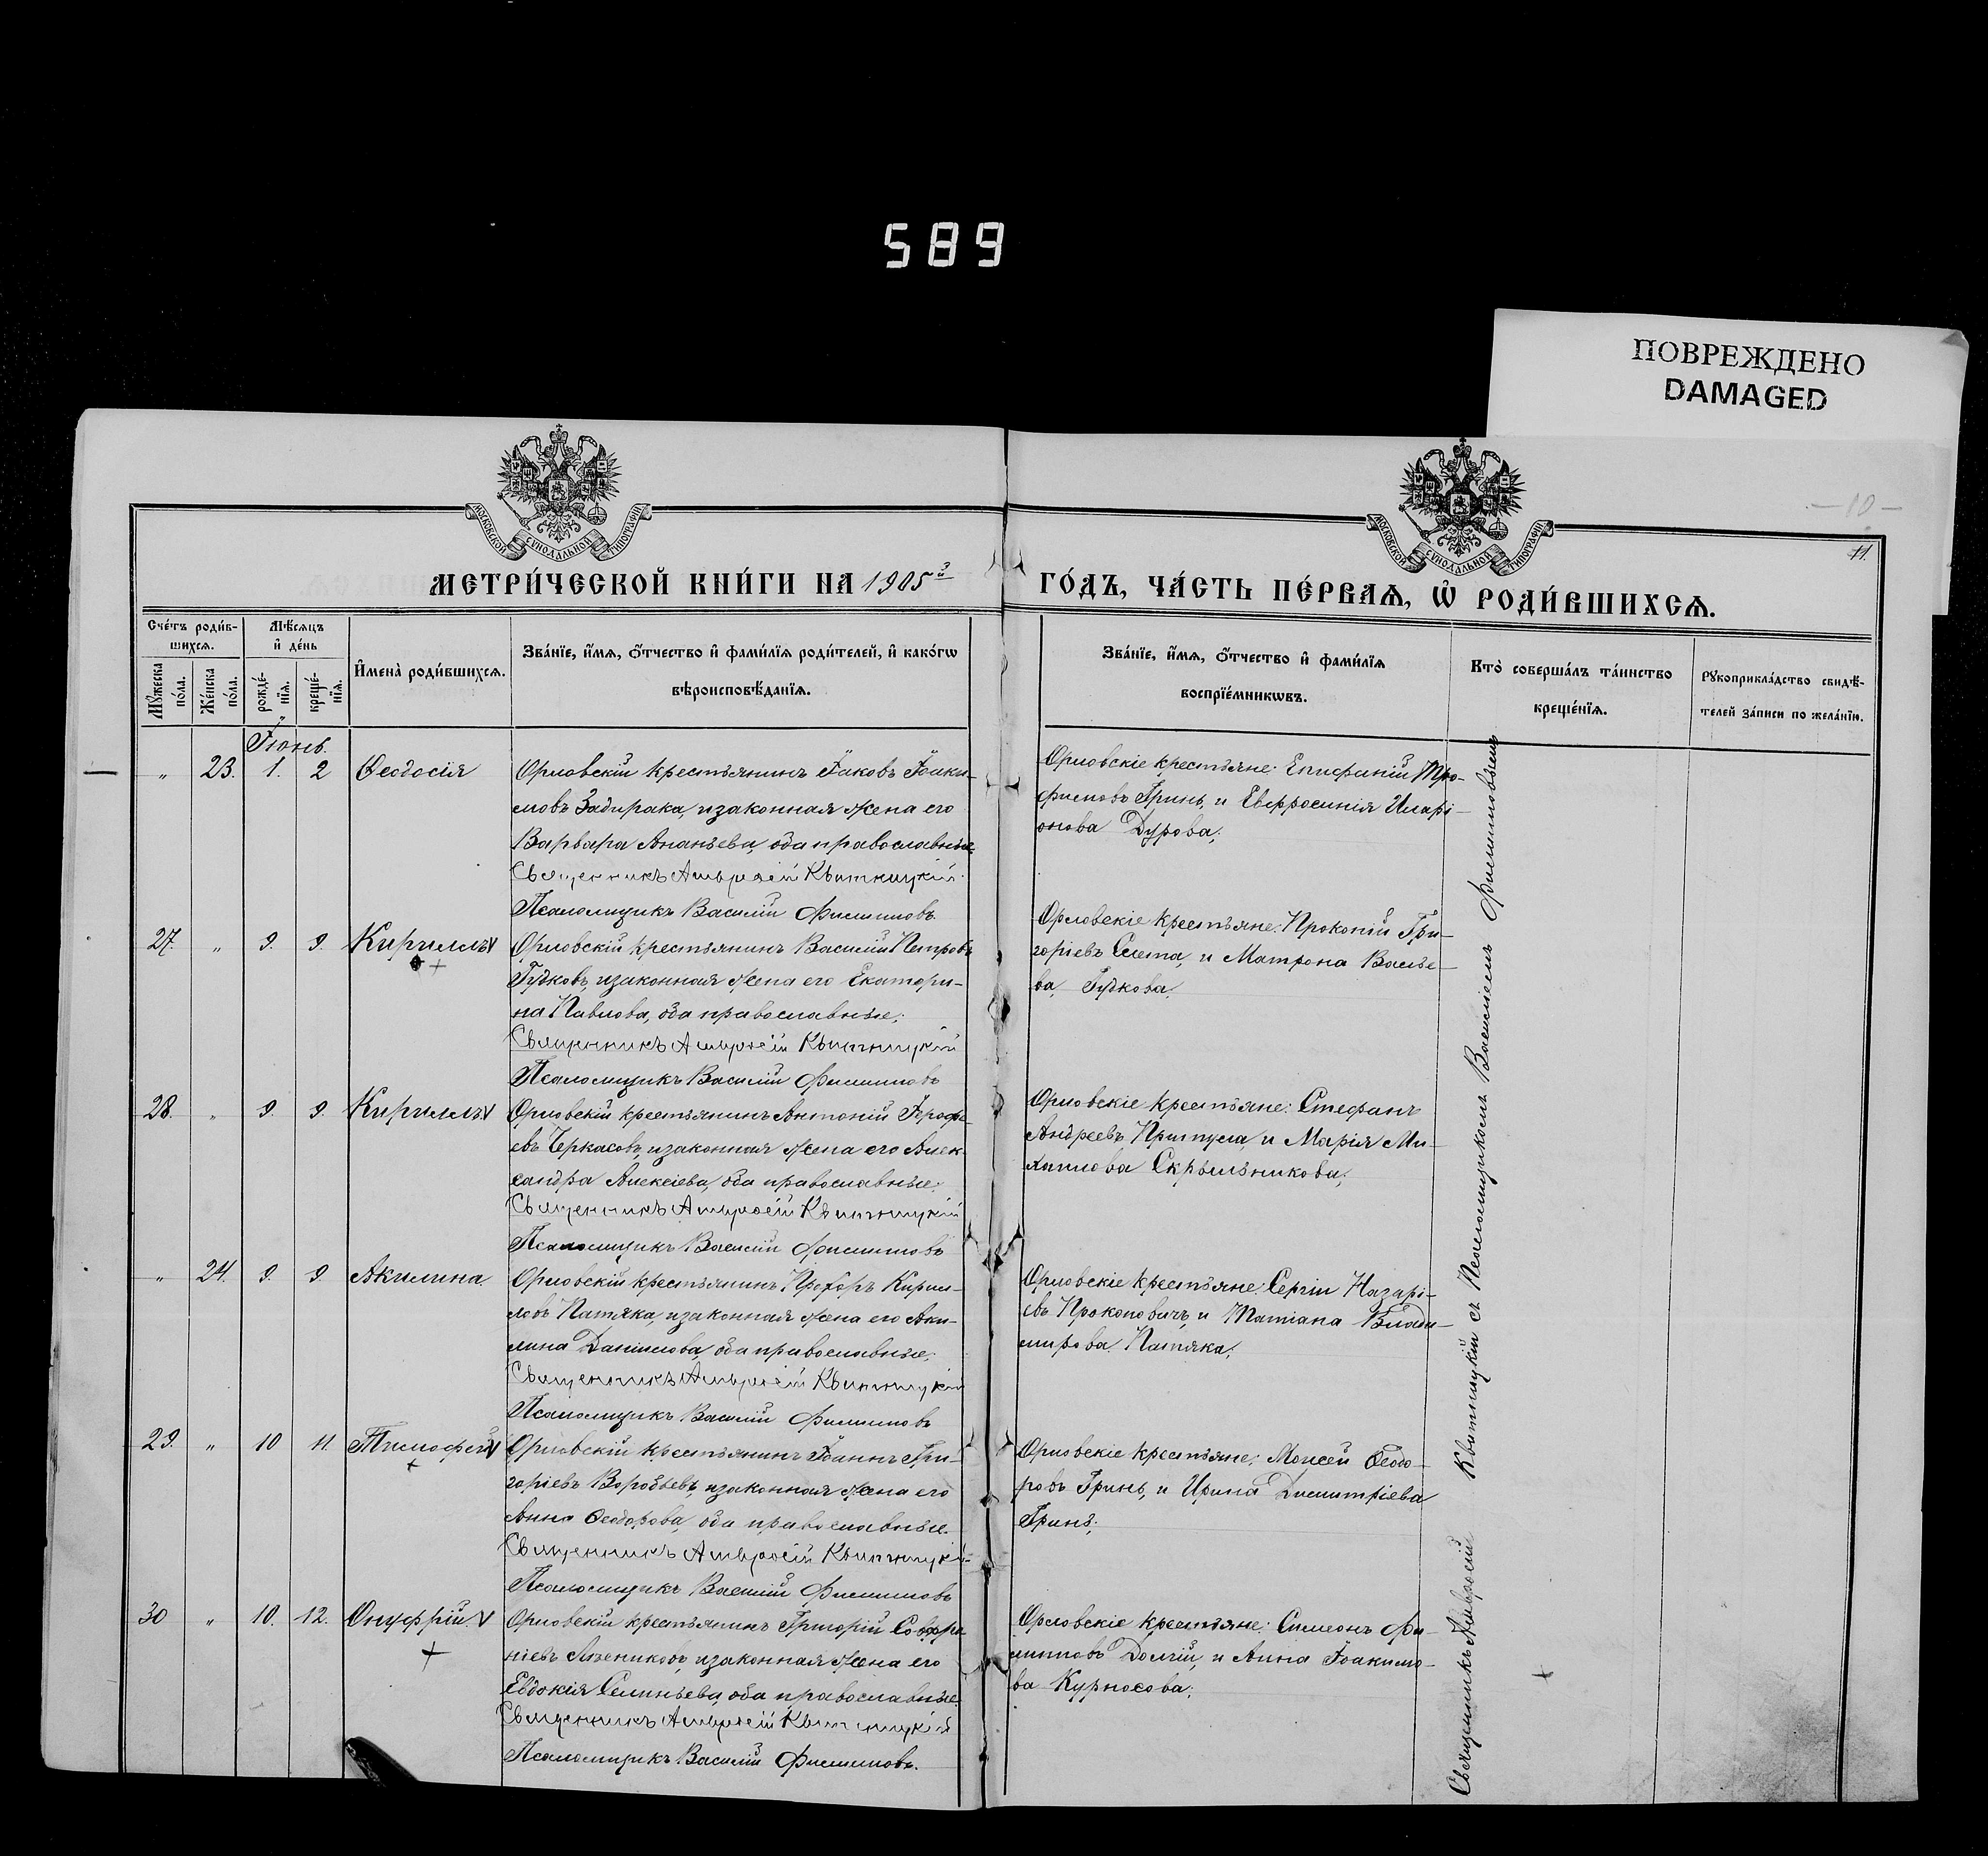 589
ПОВРЕЖДЕНО
DAMAGED
МОСКОВСКОЙ СѴНОДАЛЬНОЙ ТИПОГРАФІИ
МОСКОВСКОЙ СѴНОДАЛЬНОЙ ТИПОГРАФІИ
— 10 —
11.
МЕТРИ́ЧЕСКОЙ КНИ́ГИ НА 1905й
ГО́ДЪ, ЧА́СТЬ ПЕ́РВАѦ, Ѡ҆ РОДИ́ВШИХСѦ.
Сче́тъ роди́в-
шихсѧ.
Мѣ́сѧцъ
и҆ де́нь
Мꙋ́жеска
по́ла.
Же́нска
по́ла.
рожде́-
нїѧ.
креще́-
нїѧ.
И҆мена̀ роди́вшихсѧ.
Зва́нїе, и҆́мѧ, ѻ҆́тчество и҆ фами́лїѧ роди́телей, и҆ како́гѡ
вѣроисповѣ́данїѧ.
Зва́нїе, и҆́мѧ, ѻ҆́тчество и҆ фами́лїѧ
воспрїе́мникѡвъ.
Кто̀ соверша́лъ та́инство
креще́нїѧ.
Рꙋкоприкла́дство свидѣ́-
телей за́писи по жела́нїю.
Іюнь.
„ 23. 1. 2 Ѳеодосія
Орловскій крестьянинъ Іаковъ Іоаки-
мовъ Задирака, и законная жена его
Варвара Ананьева, оба православные.
Священникъ Амвросій Квитницкій
Псаломщикъ Василій Филимоновъ
Орловскіе крестьяне: Епифаній Тро-
фимовъ Гринь, и Евфросинія Иларі-
онова Дурова;
27. „ 9. 9. Кириллъ V
Орловскій крестьянинъ Василій Петровъ
Гудковъ, и законная жена его Екатери-
на Павлова, оба православные;
Священникъ Амвросій Квитницкій
Псаломщикъ Василій Филимоновъ
Орловскіе крестьяне: Прокопій Гри-
горіевъ Слета, и Матрона Василье-
ва Гудкова;
28. „ 9. 9. Кириллъ V
Орловскій крестьянинъ Антоній Ѳерофе-
евъ Черкасовъ, и законная жена его Алек-
сандра Алексіева, оба православные.
Священникъ Амвросій Квитницкій
Псаломщикъ Василій Филимоновъ
Орловскіе крестьяне: Стефанъ
Андреевъ Припула, и Марія Ми-
хаилова Скрыльникова;
„ 24. 9. 9 Акилина
Орловскій крестьянинъ Прохоръ Кирил-
ловъ Патяка, и законная жена его Аки-
лина Даніилова, оба православные;
Священникъ Амвросій Квитницкій
Псаломщикъ Василій Филимоновъ
Орловскіе крестьяне: Сергій Назарі-
евъ Прокоповичъ, и Татіана Влади-
мирова Патяка;
29. „ 10 11. Тимофей V
Орловскій крестьянинъ Іоаннъ Гри-
горіевъ Воробьевъ, и законная жена его
Анна Ѳеодорова, оба православные.
Священникъ Амвросій Квитницкій
Псаломщикъ Василій Филимоновъ
Орловскіе крестьяне: Моисей Ѳеодо-
ровъ Гринь, и Ирина Димитріева
Гринь;
30 „ 10. 12. Онуфрій. V
Орловскій крестьянинъ Григорій Софро-
ніевъ и законная жена его
Евдокія оба православные.
Священникъ Амвросій Квитницкій
Псаломщикъ Василій Филимоновъ.
Орловскіе крестьяне: Симеонъ Фи-
липповъ Долгій, и Анна Іоакимо-
ва Курносова;
Священникъ Амвросій Квитницкій съ Псаломщикомъ Василіемъ Филимоновымъ